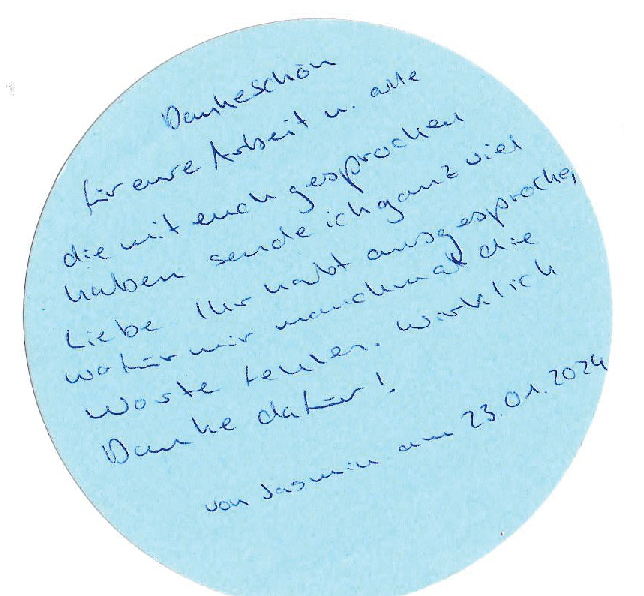 Dankeschön
für eure Arbeit u. alle
die mit euch gesprochen
haben sende ich ganz viel
Liebe Ihr habt ausgesproche,
wofür mir manchmal die
Worte fehlen. Wirklich
Danke dafür!
von Jasmin am 23.01.2024